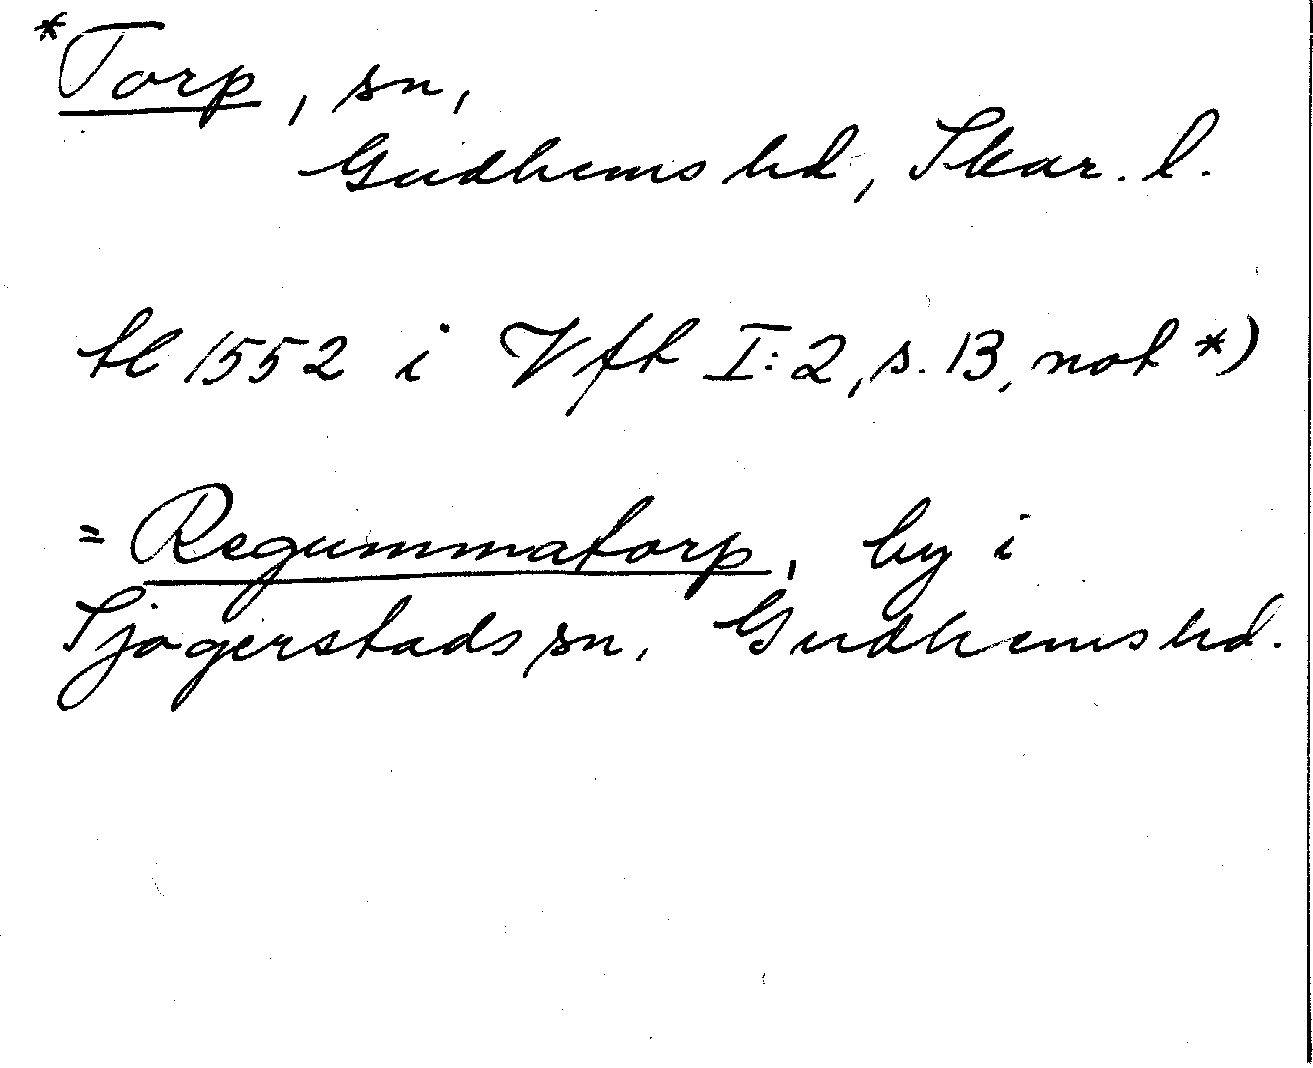 *Torp, sn,
Gudhems hd, Skar. l.
tl 1552 i Vft I:2, s. 13, not *)
= Regummatorp, by i
Sjogerstads sn, Gudhems hd.